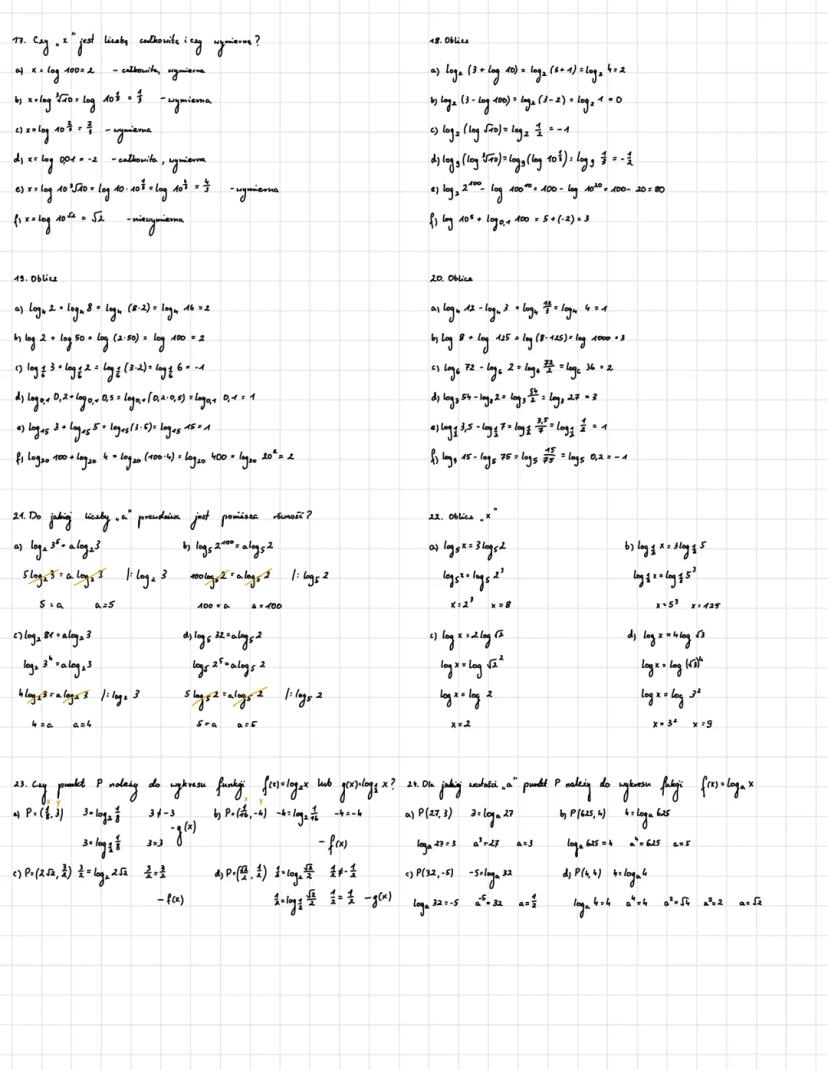 17. Czy „x” jest liczbą całkowitą i czy wymierną?
a) x = log 100 = 2 - całkowita, wymierna
b) x = log ∛10 = log 10^(1/3) = 1/3 - wymierna
c) x = log 10^(2/3) = 2/3 - wymierna
d) x = log 0,01 = -2 - całkowita, wymierna
e) x = log 10 ∛10 = log 10 · 10^(1/3) = log 10^(4/3) = 4/3 - wymierna
f) x = log 10^(√2) = √2 - niewymierna
18. Oblicz
a) log₂ (3 + log 10) = log₂ (3+1) = log₂ 4 = 2
b) log₂ (3 - log 100) = log₂ (3-2) = log₂ 1 = 0
c) log₂ (log √10) = log₂ 1/2 = -1
d) log₉ (log ∛10) = log₉ (log 10^(1/3)) = log₉ 1/3 = -1/2
e) log₂ 2¹⁰⁰ - log 100¹⁰ = 100 - log 10²⁰ = 100 - 20 = 80
f) log 10⁵ + log₀,₁ 100 = 5 + (-2) = 3
19. Oblicz
a) log₄ 2 + log₄ 8 = log₄ (8·2) = log₄ 16 = 2
b) log 2 + log 50 = log (2·50) = log 100 = 2
c) log_(1/6) 3 + log_(1/6) 2 = log_(1/6) (3·2) = log_(1/6) 6 = -1
d) log₀,₁ 0,2 + log₀,₁ 0,5 = log₀,₁ (0,2·0,5) = log₀,₁ 0,1 = 1
e) log₁₅ 3 + log₁₅ 5 = log₁₅ (3·5) = log₁₅ 15 = 1
f) log₂₀ 100 + log₂₀ 4 = log₂₀ (100·4) = log₂₀ 400 = log₂₀ 20² = 2
20. Oblicz
a) log₄ 12 - log₄ 3 = log₄ 12/3 = log₄ 4 = 1
b) log 8 + log 125 = log (8·125) = log 1000 = 3
c) log₆ 72 - log₆ 2 = log₆ 72/2 = log₆ 36 = 2
d) log₃ 54 - log₃ 2 = log₃ 54/2 = log₃ 27 = 3
e) log_(1/2) 3,5 - log_(1/2) 7 = log_(1/2) 3,5/7 = log_(1/2) 1/2 = 1
f) log₅ 15 - log₅ 75 = log₅ 15/75 = log₅ 0,2 = -1
21. Do jakiej liczby „a” prawdziwa jest poniższa równość?
a) log₂ 3⁵ = a log₂ 3
5 log₂ 3 = a log₂ 3 |: log₂ 3
5 = a a = 5
b) log₅ 2¹⁰⁰ = a log₅ 2
100 log₅ 2 = a log₅ 2 |: log₅ 2
100 = a a = 100
c) log₂ 81 = a log₂ 3
log₂ 3⁴ = a log₂ 3
4 log₂ 3 = a log₂ 3 |: log₂ 3
4 = a a = 4
d) log₅ 32 = a log₅ 2
log₅ 2⁵ = a log₅ 2
5 log₅ 2 = a log₅ 2 |: log₅ 2
5 = a a = 5
22. Oblicz „x”
a) log₅ x = 3 log₅ 2
log₅ x = log₅ 2³
x = 2³ x = 8
b) log_(1/2) x = 3 log_(1/2) 5
log_(1/2) x = log_(1/2) 5³
x = 5³ x = 125
c) log x = 2 log √2
log x = log √2²
log x = log 2
x = 2
d) log x = 4 log √3
log x = log (√3)⁴
log x = log 3²
x = 3² x = 9
23. Czy punkt P należy do wykresu funkcji f(x) = log₂ x lub g(x) = log_(1/2) x?
x y
a) P = (1/8, 3) 3 = log₂ 1/8 3 ≠ -3
3 = log_(1/2) 1/8 3 = 3 - g(x)
x y
b) P = (1/16, -4) -4 = log₂ 1/16 -4 = -4
- f(x)
c) P = (2√2, 3/2) 3/2 = log₂ 2√2 3/2 = 3/2
- f(x)
d) P = (√2/2, 1/2) 1/2 = log₂ √2/2 1/2 ≠ -1/2
1/2 = log_(1/2) √2/2 1/2 = 1/2 - g(x)
24. Dla jakiej wartości „a” punkt P należy do wykresu fukcji f(x) = logₐ x
a) P(27, 3) 3 = logₐ 27
logₐ 27 = 3 a³ = 27 a = 3
b) P(625, 4) 4 = logₐ 625
logₐ 625 = 4 a⁴ = 625 a = 5
c) P(32, -5) -5 = logₐ 32
logₐ 32 = -5 a⁻⁵ = 32 a = 1/2
d) P(4, 4) 4 = logₐ 4
logₐ 4 = 4 a⁴ = 4 a² = √4 a² = 2 a = √2